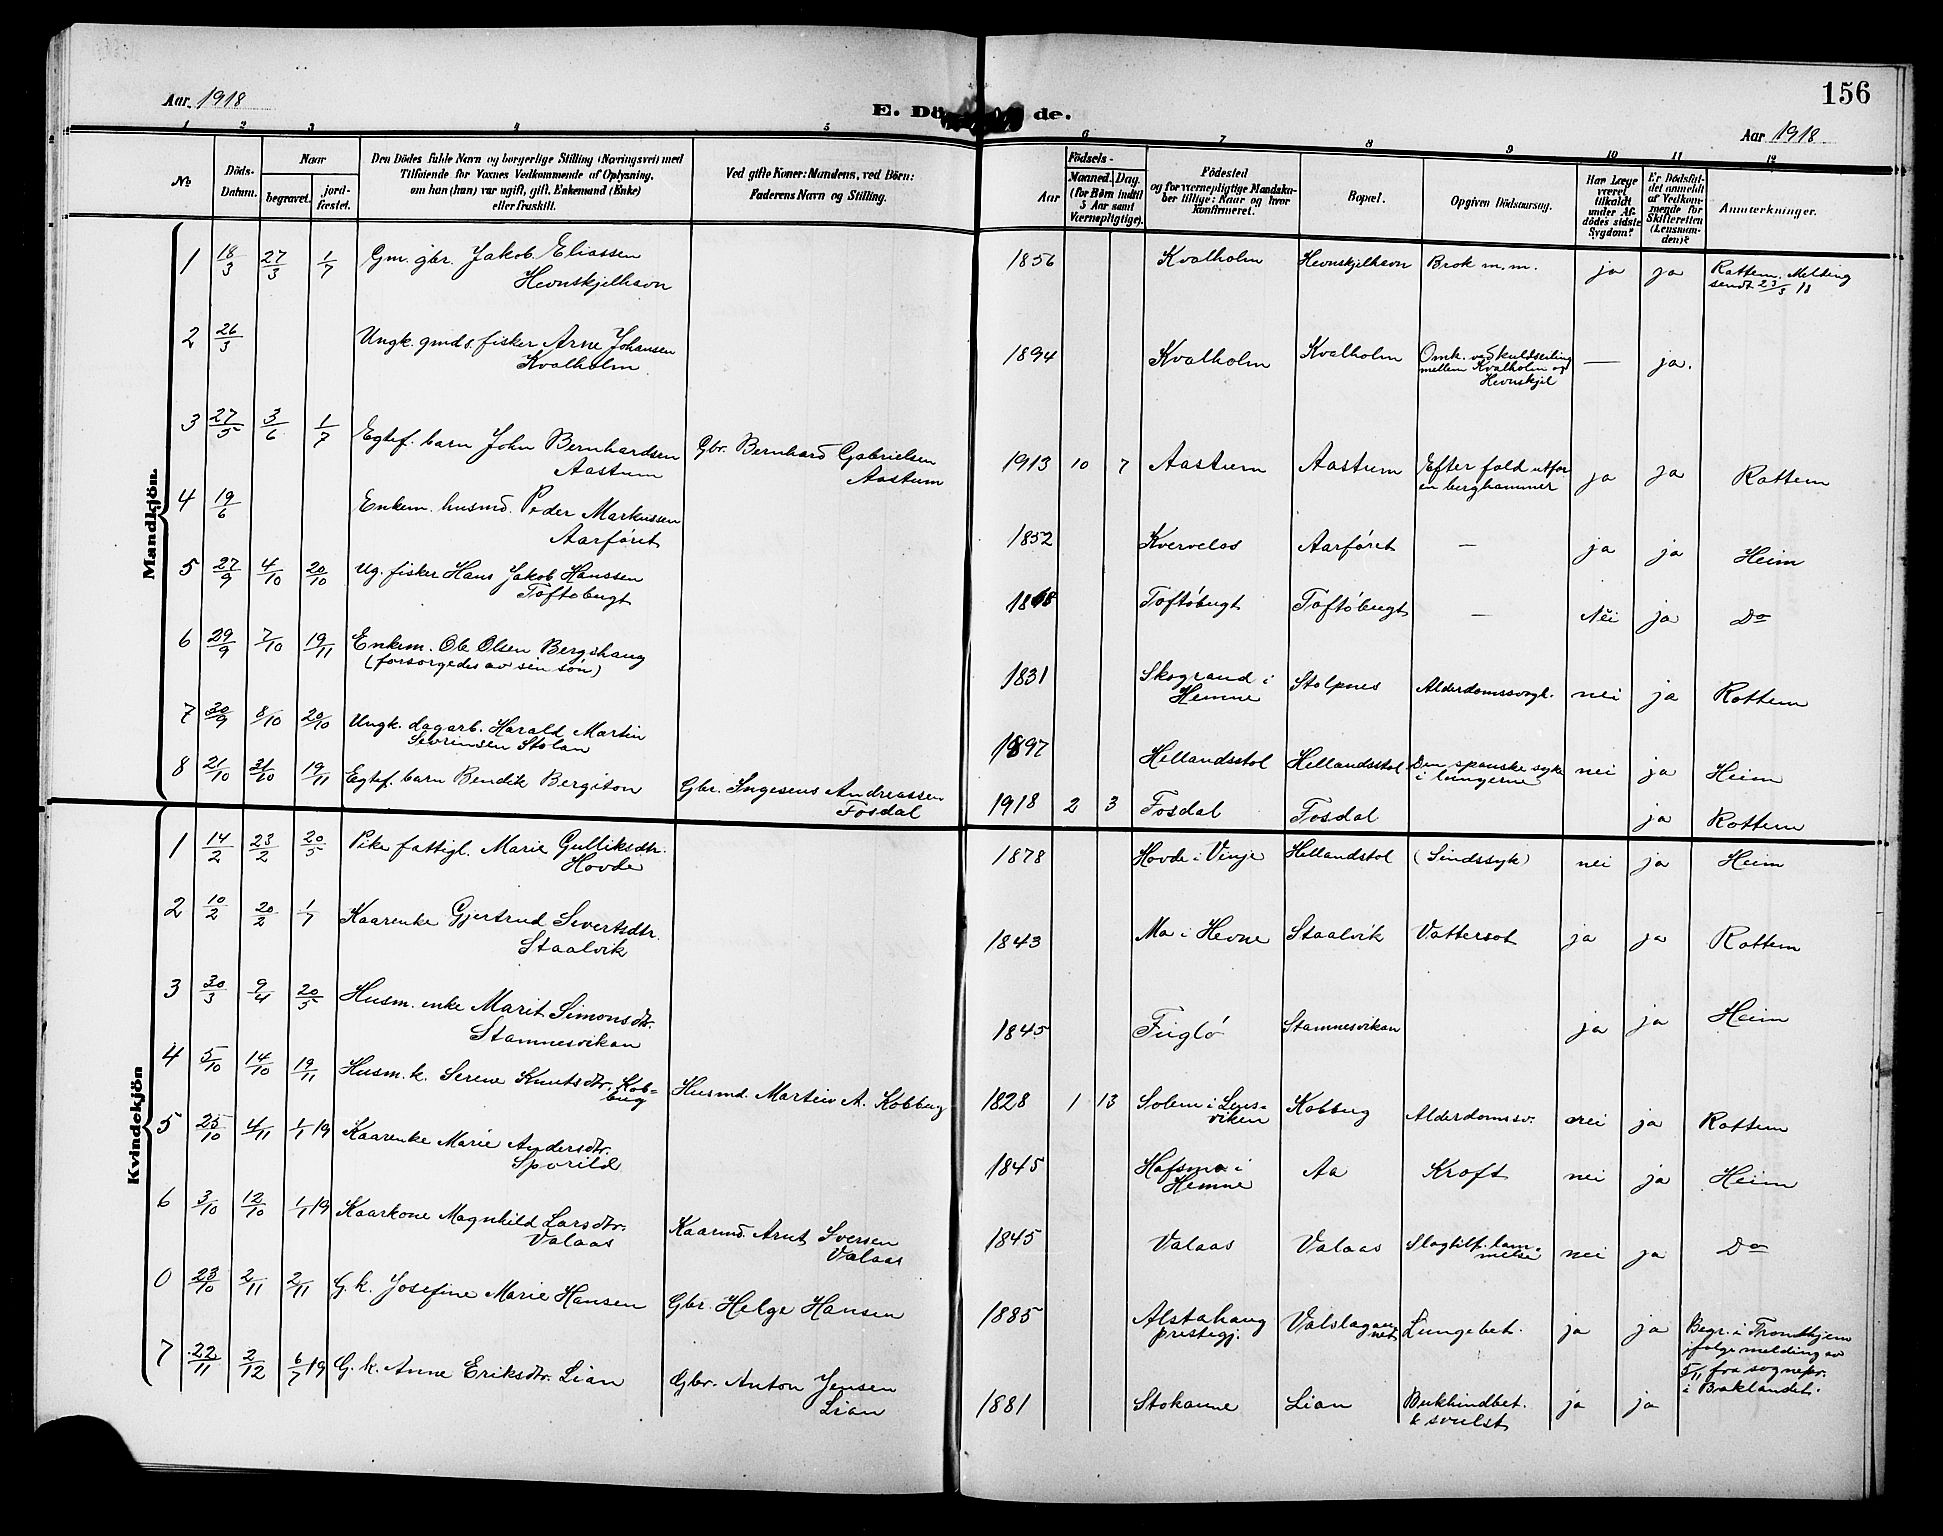 156
Aar 1918
E. Dö de.
Aar 1918
1 2 3 4 5 6 7 8 9 10 11 12
No
Döds-
Datum.
Naar
begravet.
jord-
fæstet.
Den Dödes fulde Navn og borgerlige Stilling (Næringsvei) med
Tilföiende for Voxnes Vedkommende af Oplysning,
om han (hun) var ugift, gift, Enkemand (Enke)
eller fraskilt.
Ved gifte Koner: Mandens, ved Börn:
Faderens Navn og Stilling.
Födsels-
Aar
Maaned. Dag.
(for Börn indtil
5 Aar samt
Værnepligtige).
Födested
og for værnepligtige Mandska-
ber tillige: Naar og hvor
konfirmeret.
Bopæl.
Opgiven Dödsaarsag.
Har Læge
været
tilkaldt
under Af-
dödes sidste
Sygdom?
Er Dödsfal-
det anmeldt
af Vedkom-
mende for
Skifteretten
(Lensman-
den)?
Anmærkninger.
Mandkjön.
1 18/3 27/3 1/7 Gm. gbr. Jakob Eliassen
Hevnskjelhavn
1856 Kvalholm Hevnskjelhavn Brok m.m. ja ja Rottem. Melding
sendt 23/3 18
2 26/3 Ungk. gmds. fisker Arne Johansen
Kvalholm
1894 Kvalholm Kvalholm Omk. ved kuldseiling
mellem Kvalholm og
Hevnskjel
— ja.
3 27/5 3/6 1/7 Egtef. barn John Bernhardsen
Aastum
Gbr. Bernhard Gabrielsen
Aastum
1913 10 7 Aastum Aastum Efter fald utfor
en berghammer
ja ja Rottem
4 19/6 Enkem. husmd. Peder Markussen
Aarföret
1852 Kvervelos Aarföret — ja ja Heim
5 27/9 4/10 20/10 Ug. fisker Hans Jakob Hanssen
Toftöbugt
Toftöbugt Toftöbugt — Nei ja Do
6 29/9 7/10 19/11 Enkem. Ole Olsen Bergshaug
(forsorgedes av sin søn)
1831 Skogrand i
Hemne
Stolpnes Alderdomssvagh. nei ja Rottem
7 30/9 8/10 20/10 Ungk. dagarb. Harald Martin
Sevrinsen Stolan
1897 Hellandsstol Hellandsstol Den spanske syke
i lungerne
nei ja Heim
8 21/10 31/10 19/11 Egtef. barn Bendik Bergiton
Gbr. Ingesens Andreassen
Fosdal
1918 2 3 Fosdal Fosdal ja Rottem
Kvindekjön
1 14/2 23/2 20/5 Pike fattigl. Marie Gulliksdtr.
Hovde
1878 Hovde i Vinje Hellandstol (Sindssyk) nei ja Heim
2 10/2 20/2 1/7 Kaarenke Gjertrud Sivertsdtr.
Staalvik
1843 Mo i Hevne Staalvik Vattersot ja ja Rottem
3 30/3 9/4 20/5 Husm. enke Marit Simonsdtr.
Stamnesvikan
1845 Fuglö Stamnesvikan ja ja Heim
4 5/10 14/10 19/11 Husm. k. Serene Knutsdtr. Kob-
bug
Husmd. Martin A. Kobbug
1828 1 13 Solem i Lens-
viken
Kobbug Alderdomssv. nei ja Rottem
5 25/10 4/11 1/1 19 Kaarenke Marie Andersdtr.
Sporild
1845 Hafsmo i
Hemne
Aa Kræft nei ja Heim
6 3/10 12/10 1/1 19 Kaarkone Magnhild Larsdtr.
Valaas
Kaarmd. Arnt Iversen
Valaas
1845 Valaas Valaas Slagtilf. lam-
melse
nei ja Do
0 23/10 2/11 2/11 G.k. Josefine Marie Hansen
Gbr. Helge Hansen
1885 Alstahaug
prestegj.
Valslagvaag
Lungebet. ja ja Begr. i Trondhjem
ifølge melding av
5/11 fra sognepr.
i Baklandet.
7 22/11 2/12 6/7 19 G.k. Anne Eriksdtr. Lian
Gbr. Anton Jensen
Lian
1881 Stokanne Lian Bukhindbet.
& svulst
ja ja